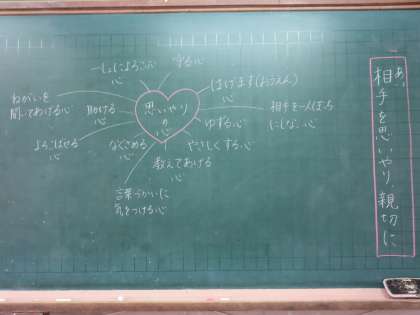 あい
相手を思いやり、親切に
思いやり
の
心
一しょによろこぶ
心
守る心
はげます(おうえん)
心
相手を一人ぼっち
にしない心
ゆずる心
やさしくする心
教えてあげる
心
なぐさめる
心
言葉づかいに
気をつける心
よろこばせる
心
助ける
心
ねがいを
聞いてあげる心